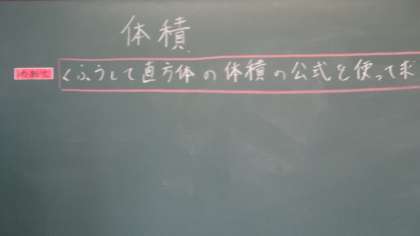 体積
くふうして直方体の体積の公式を使って求